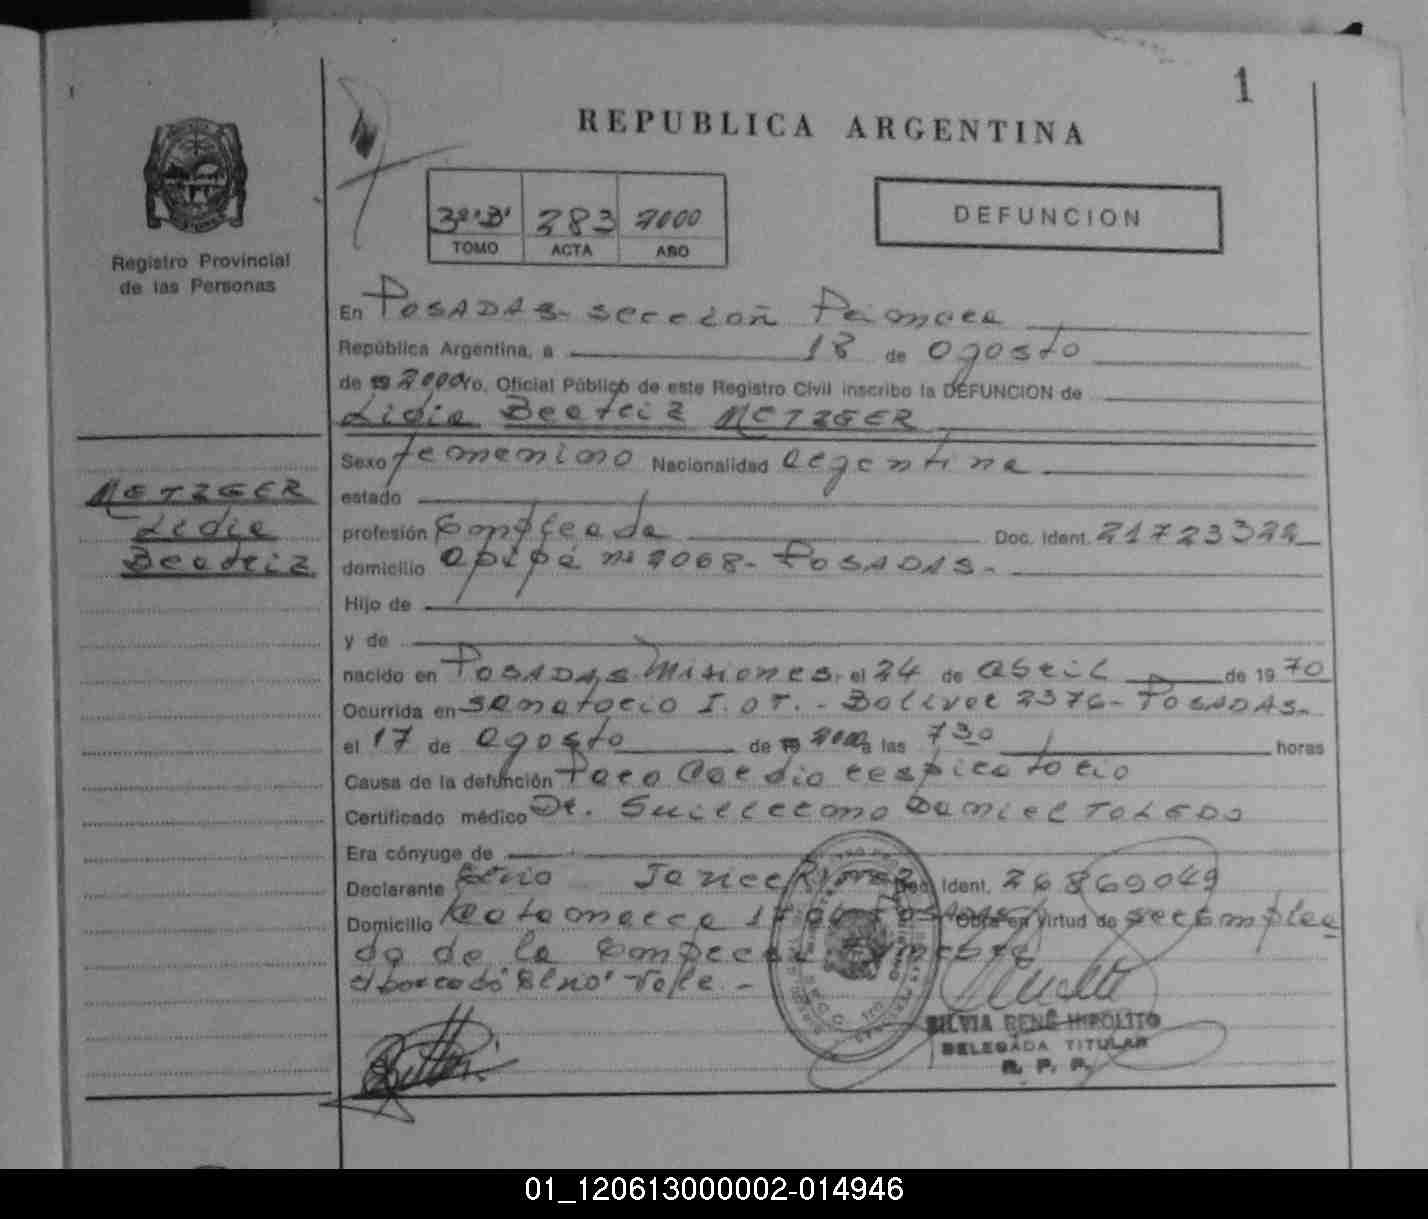 1
REPUBLICA ARGENTINA
DEFUNCION
3º"B" 283 2000
TOMO ACTA AÑO
Registro Provincial
de las Personas
En POSADAS- sección Primera
República Argentina, a 18 de agosto
de 19 2000 Yo, Oficial Público de este Registro Civil inscribo la DEFUNCION de
Lidia Beatriz METZGER
Sexo femenino Nacionalidad argentina
METZGER
Lidia
Beatriz
estado
profesión Empleada Doc. Ident. 21723322
domicilio apipé nº 2068- POSADAS-
Hijo de
y de
nacido en POSADAS-Misiones, el 24 de abril de 1970
Ocurrida en sanatorio I.OT.- Bolivar 2376- POSADAS-
el 17 de agosto de 19 2000 a las 730 horas
Causa de la defunción Paro Cardio respiratorio
Certificado médico Dr. Guillermo Daniel TOLEDO
Era cónyuge de
Declarante Doc. Ident. 26869049
Domicilio Catamarca Obra en virtud de ser Emplea
do de la Empresa
SILVIA RENÉ HIPOLITO
DELEGADA TITULAR
R. P. P.
01_120613000002-014946